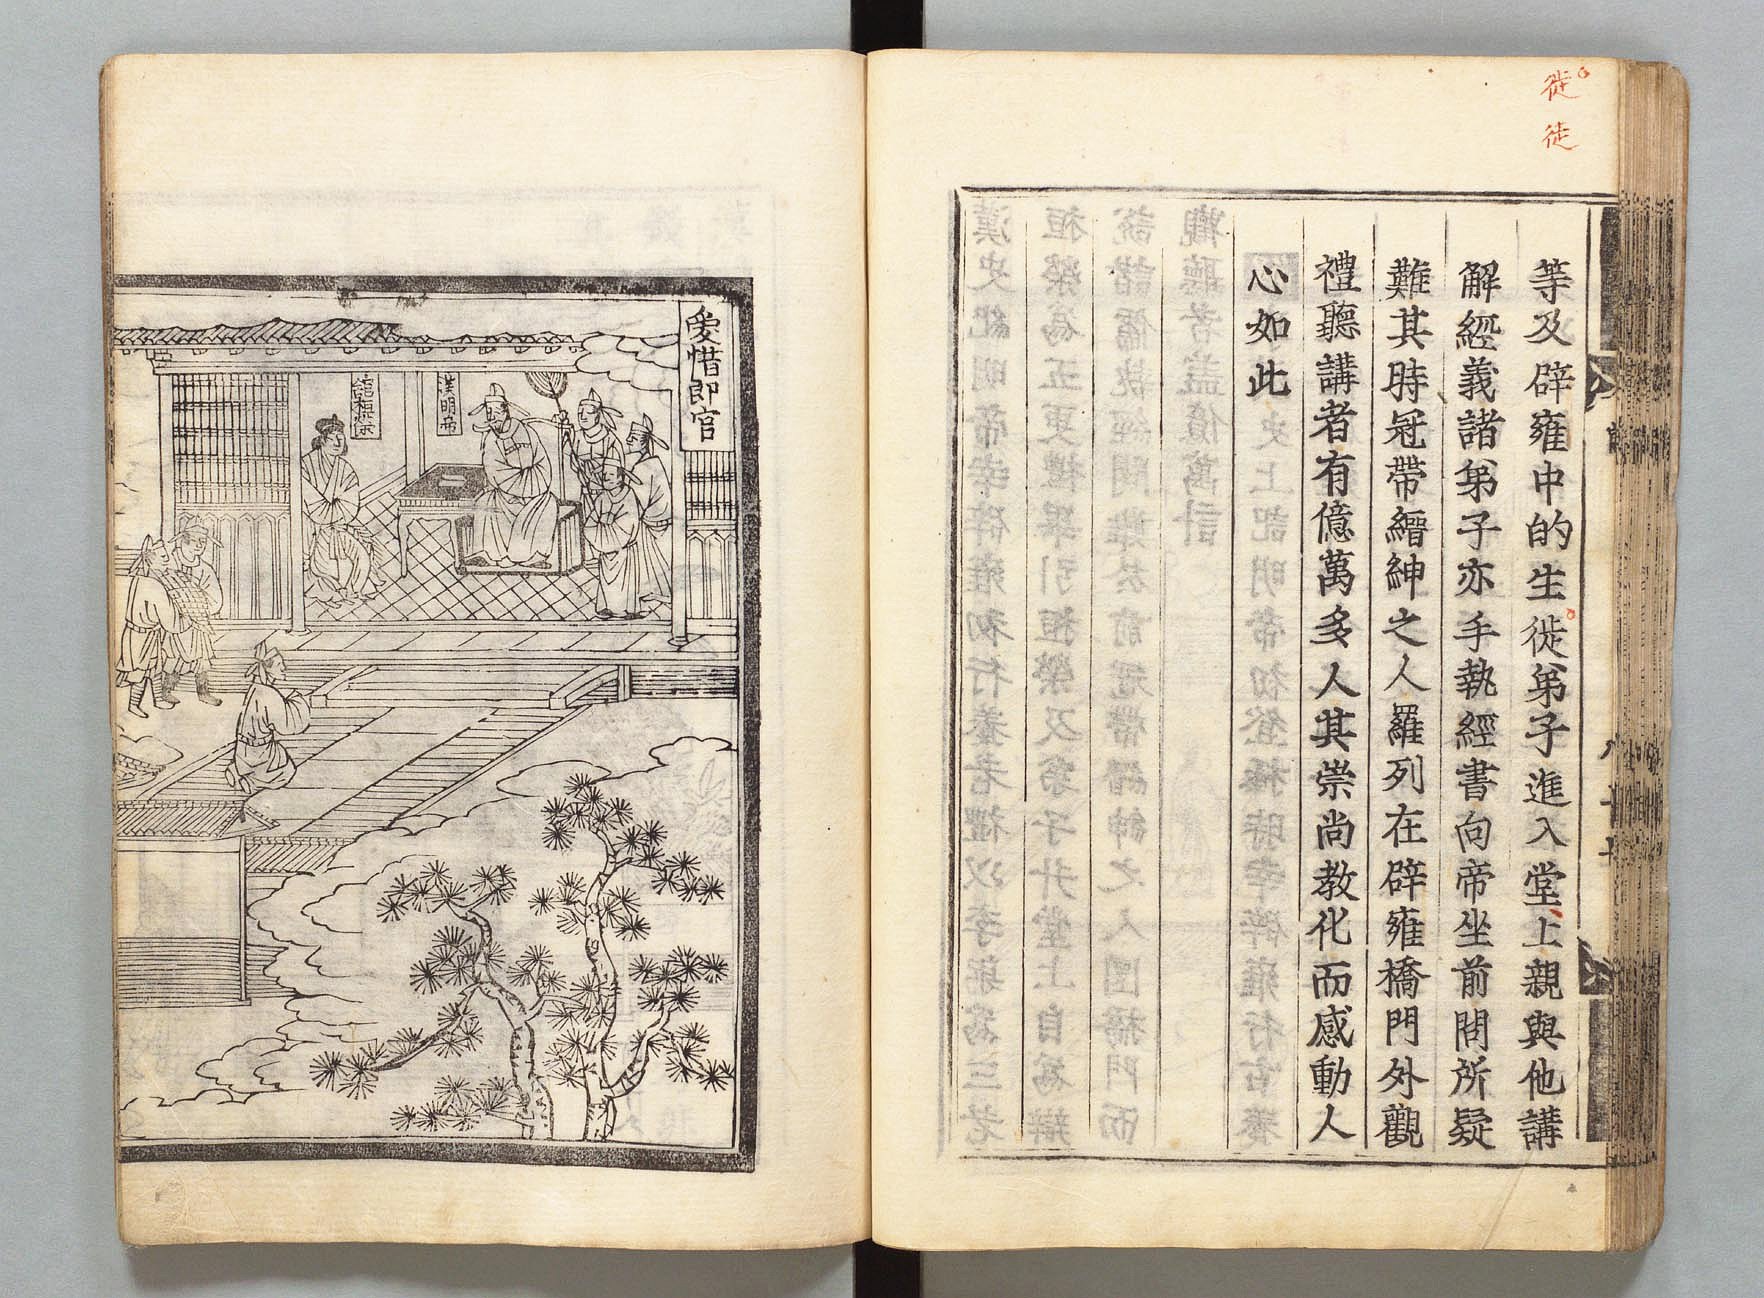 徙
徒
等及辟雍中的生徙弟子進入堂上親與他講
解經義諸弟子亦手執經書向帝坐前問所疑
難其時冠帶縉紳之人羅列在辟雍橋門外觀
禮聽講者有億萬多人其崇尚教化而感動人
心如此
愛惜郎官
漢明帝
館陶公主